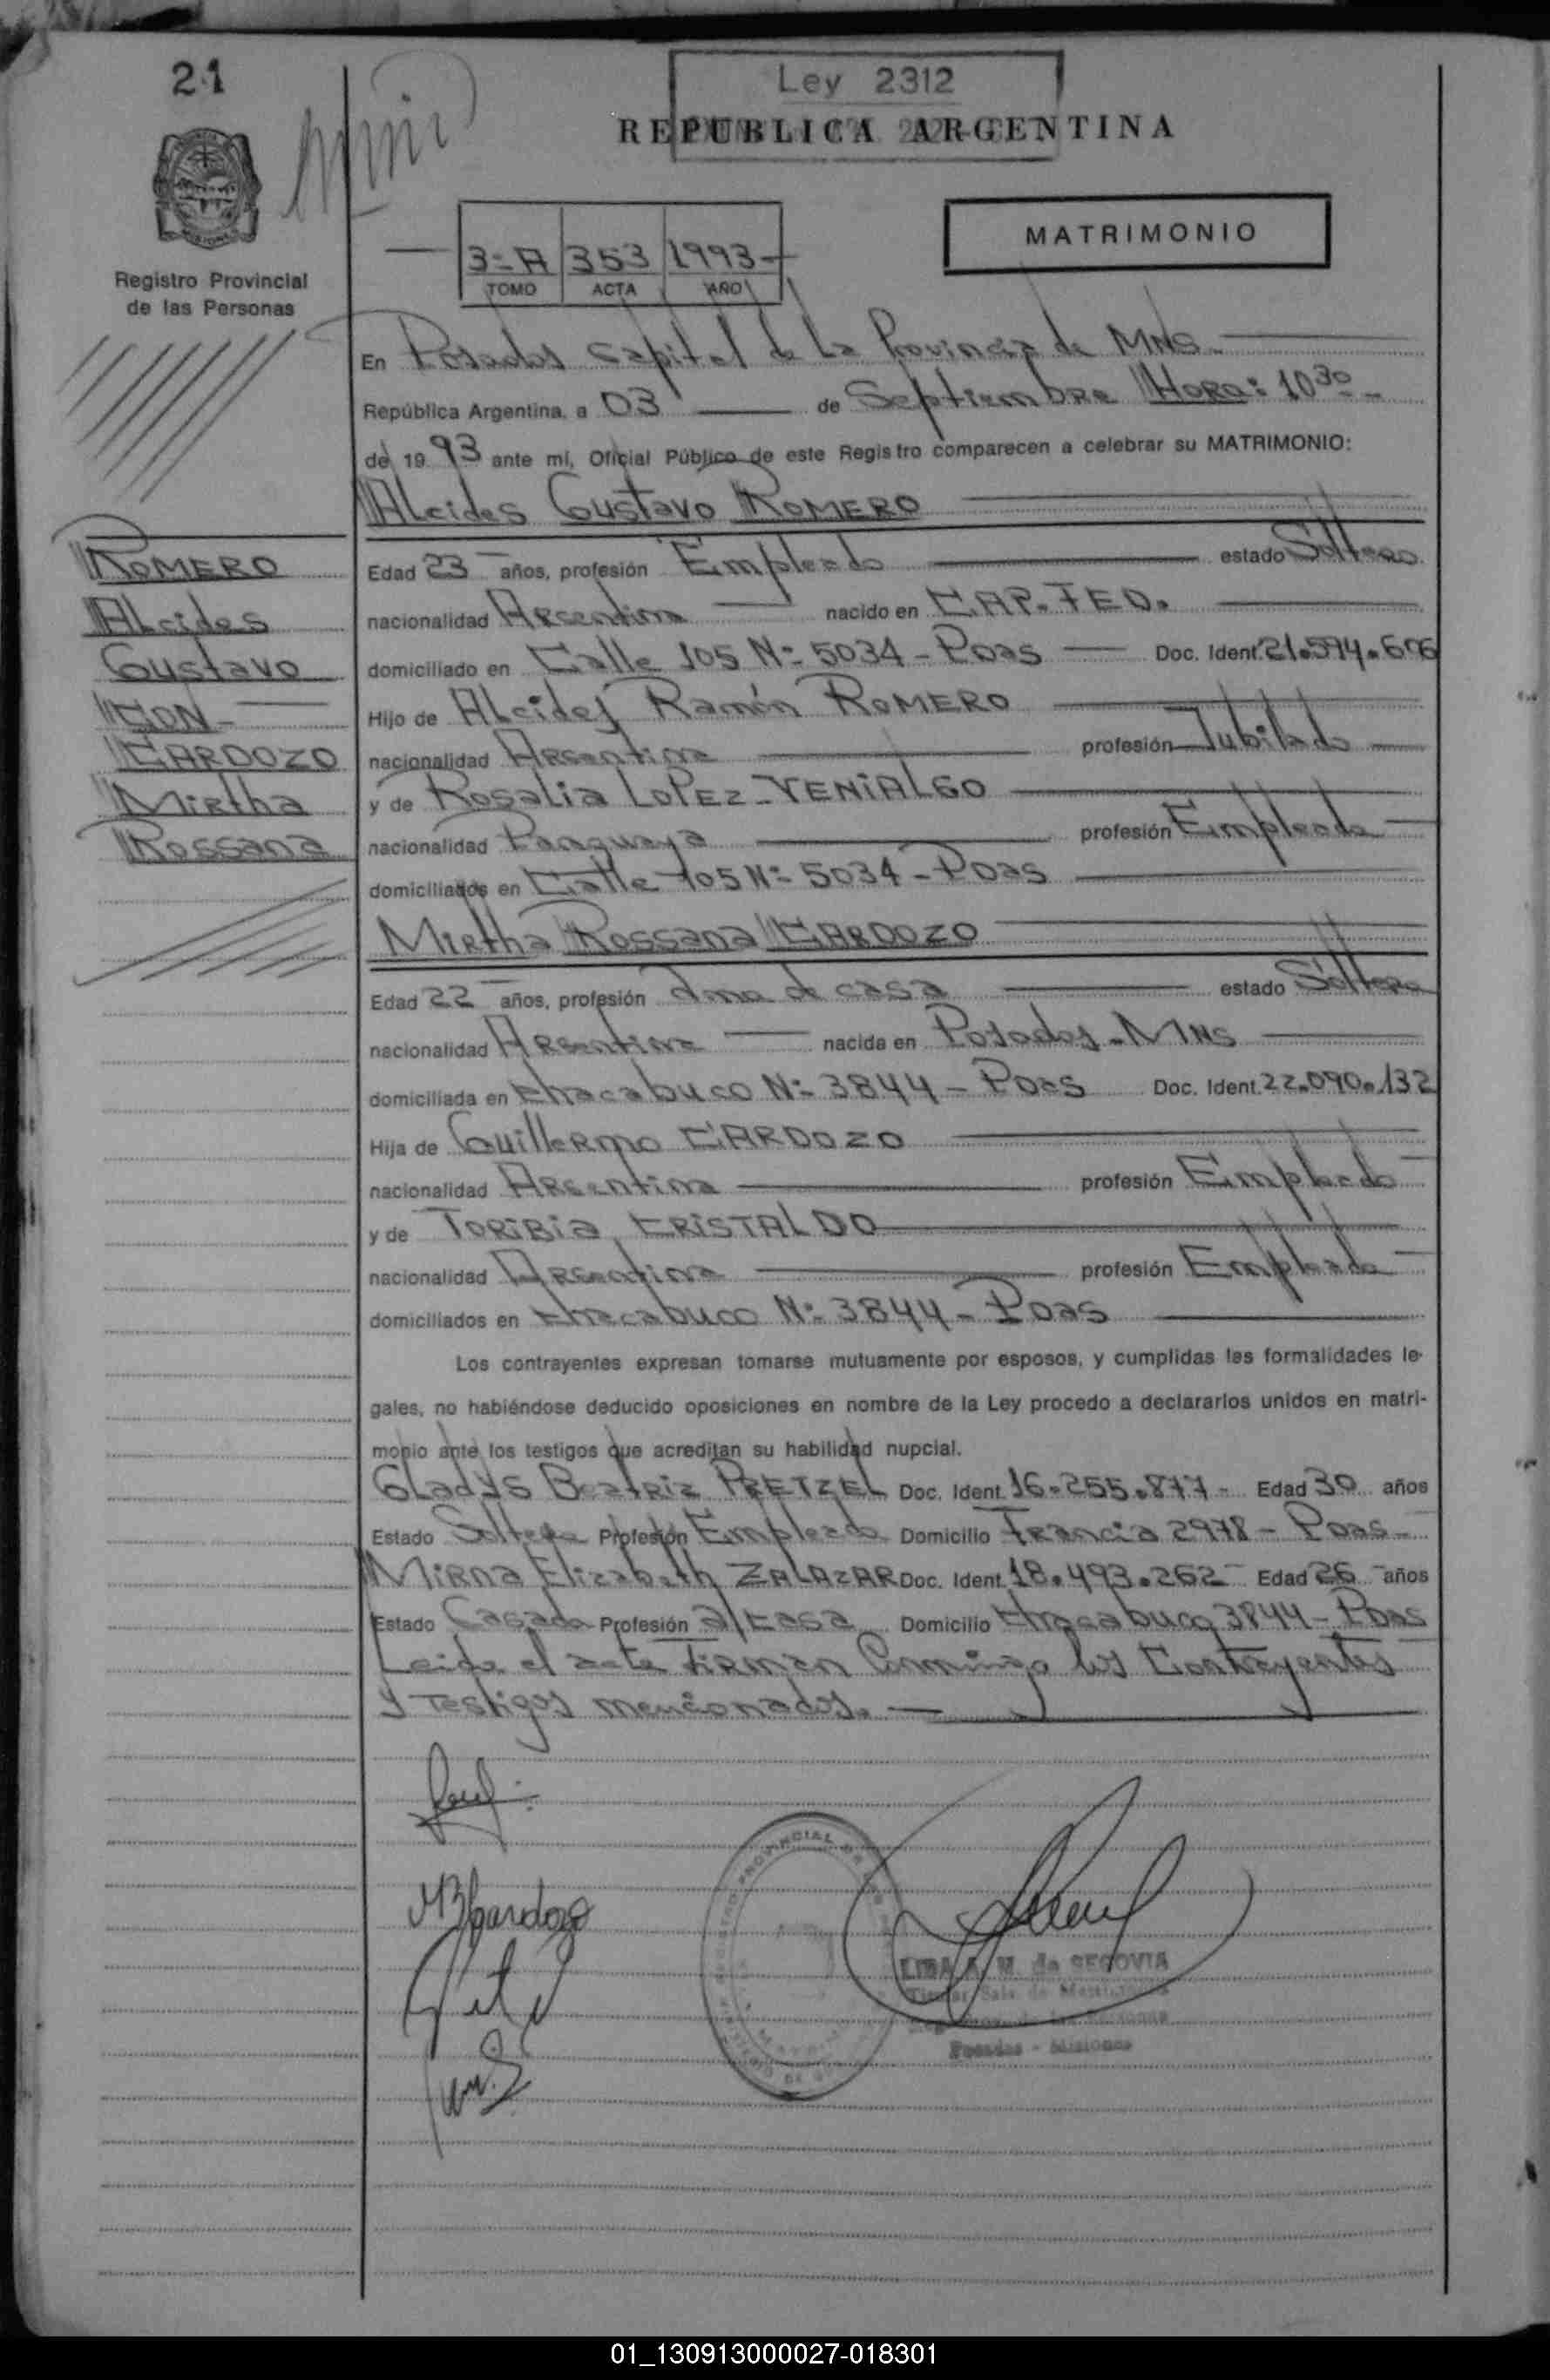 21
Ley 2312
REPUBLICA ARGENTINA
MATRIMONIO
3=A 353 1993-
TOMO ACTA AÑO
Registro Provincial
de las Personas
En Posadas Capital de La Provincia de MNS.
República Argentina, a 03 de Septiembre HORA: 10 30
de 19 93 ante mí, Oficial Público de este Registro comparecen a celebrar su MATRIMONIO:
Alcides Gustavo ROMERO
ROMERO
Alcides
Gustavo
CON
CARDOZO
Mirtha
Rossana
Edad 23 años, profesión Empleado estado Soltero
nacionalidad Argentina nacido en CAP. FED.
domiciliado en Calle 105 N= 5034 - Pdas Doc. Ident. 21.594.606
Hijo de Alcides Ramón ROMERO
nacionalidad Argentina profesión Jubilado
y de Rosalia LOPEZ-VENIALGO
nacionalidad Paraguaya profesión Empleada
domiciliados en Calle 105 N= 5034 - Pdas
Mirtha Rossana CARDOZO
Edad 22 años, profesión ama de casa estado Soltera
nacionalidad Argentina nacida en Posadas - MNS
domiciliada en Chacabuco N= 3844 - Pdas Doc. Ident. 22.090.132
Hija de Guillermo CARDOZO
nacionalidad Argentina profesión Empleado
y de TORIBIA CRISTALDO
nacionalidad Argentina profesión Empleada
domiciliados en Chacabuco N= 3844 - Pdas
Los contrayentes expresan tomarse mutuamente por esposos, y cumplidas las formalidades le-
gales, no habiéndose deducido oposiciones en nombre de la Ley procedo a declararlos unidos en matri-
monio ante los testigos que acreditan su habilidad nupcial.
Gladys Beatriz PRETZEL Doc. Ident. 16.255.877 - Edad 30 años
Estado Soltera Profesión Empleada Domicilio Francia 2978 - Pdas
Mirna Elizabeth ZALAZAR Doc. Ident. 18.493.262 Edad 26 años
Estado Casada Profesión a/casa Domicilio Chacabuco 3844 - Pdas
Leida el acta firman Conmigo los Contrayentes
y Testigos mencionados.
Cardozo
REGISTRO PROVINCIAL DE LAS
M. de SEGOVIA
Titular Sala de Matrimonios
Posadas - Misiones
01_130913000027-018301